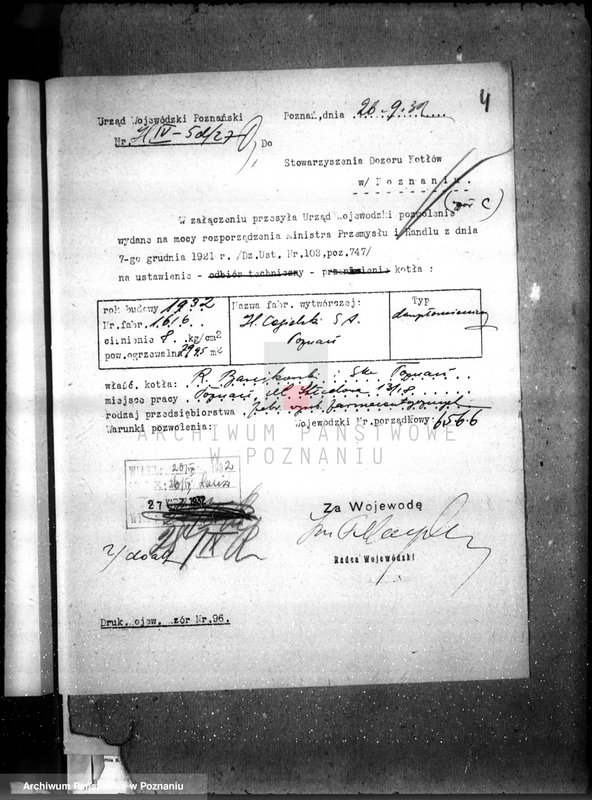 4
Urząd Wojewódzki Poznański Poznań, dnia 26.9.32
Nr. H IV-5d/27 Do
Stowarzyszenia Dozoru Kotłów
w/ Poznaniu
W załączeniu przesyła Urząd Wojewódzki pozwolenie
wydane na mocy rozporządzenia Ministra Przemysłu i Handlu z dnia
7-go grudnia 1921 r. /Dz.Ust. Nr.103,poz.747/
na ustawienie - odbiór techniczny - przeniesienie kotła :
rok budowy 1932
Nr.fabr. 1616
ciśnienie 8 kg/cm2
pow.ogrzewalna 29,95 m2
Nazwa fabr. wytwórczej:
H. Cegielski S A.
Poznań
Typ
dwupłomienicowy
właśc. kotła: R. Barcikowski Ska Poznań
miejsce pracy Poznań
rodzaj przedsiębiorstwa
Warunki pozwolenia: Wojewódzki Nr.porządkowy: 6566
ARCHIWUM PAŃSTWOWE
W POZNANIU
27 1932
Za Wojewodę
Radca Wojewódzki
Druk.Wojew. Wzór Nr.96.
Archiwum Państwowe w Poznaniu